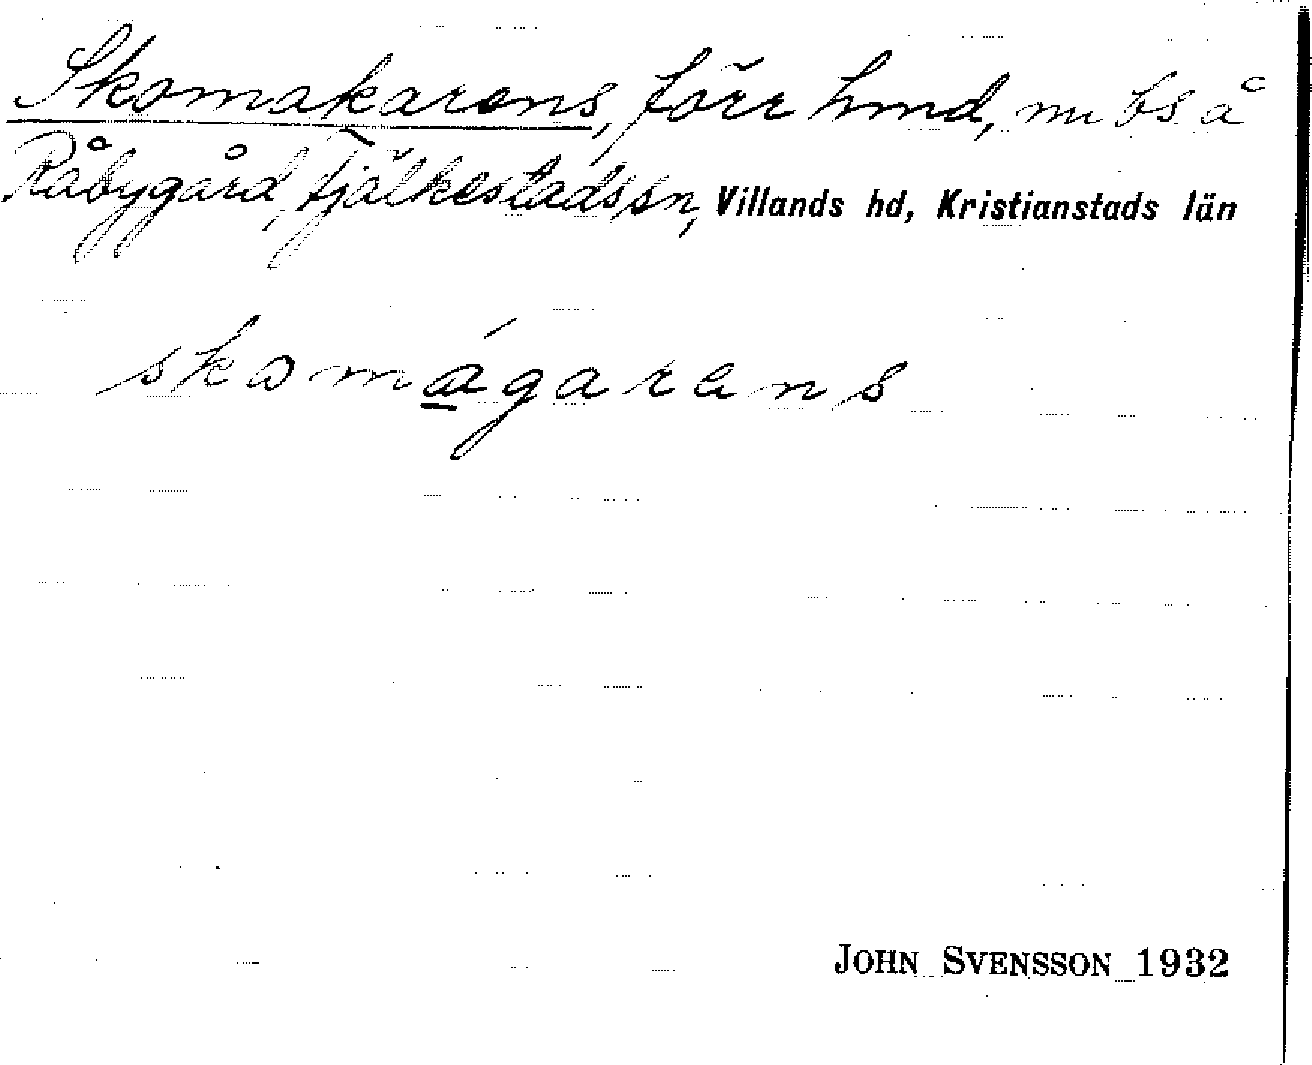 Skomakarens, förr hmd, nu bs å
Råbygård, Fjälkestads sn, Villands hd, Kristianstads län
skomágarens
JOHN SVENSSON 1932